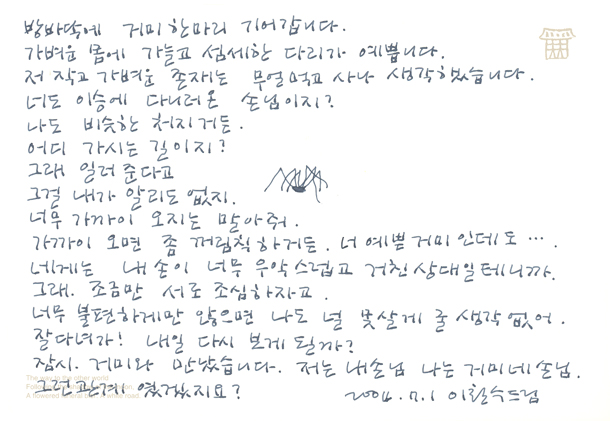 방바닥에 거미 한마리 기어갑니다.
가벼운 몸에 가늘고 섬세한 다리가 예쁩니다.
저 작고 가벼운 존재는 무얼 먹고 사나 생각했습니다.
너도 이승에 다니러온 손님이지?
나도 비슷한 처지거든.
어디 가시는 길이지?
그래 일러 준다고
그걸 내가 알리도 없지.
너무 가까이 오지는 말아줘.
가까이 오면 좀 꺼림칙하거든. 너 예쁜 거미인데도 ….
네게는 내 손이 너무 우악스럽고 거친 상대일테니까.
그래. 조금만 서로 조심하자고.
너무 불편하게만 않으면 나도 널 못살게 줄 생각 없어.
잘다녀가! 내일 다시 보게 될까?
잠시. 거미와 만났습니다. 저는 내손님 나는 거미네손님.
그런관계 였겠지요? 2004.7.1 이철수드림